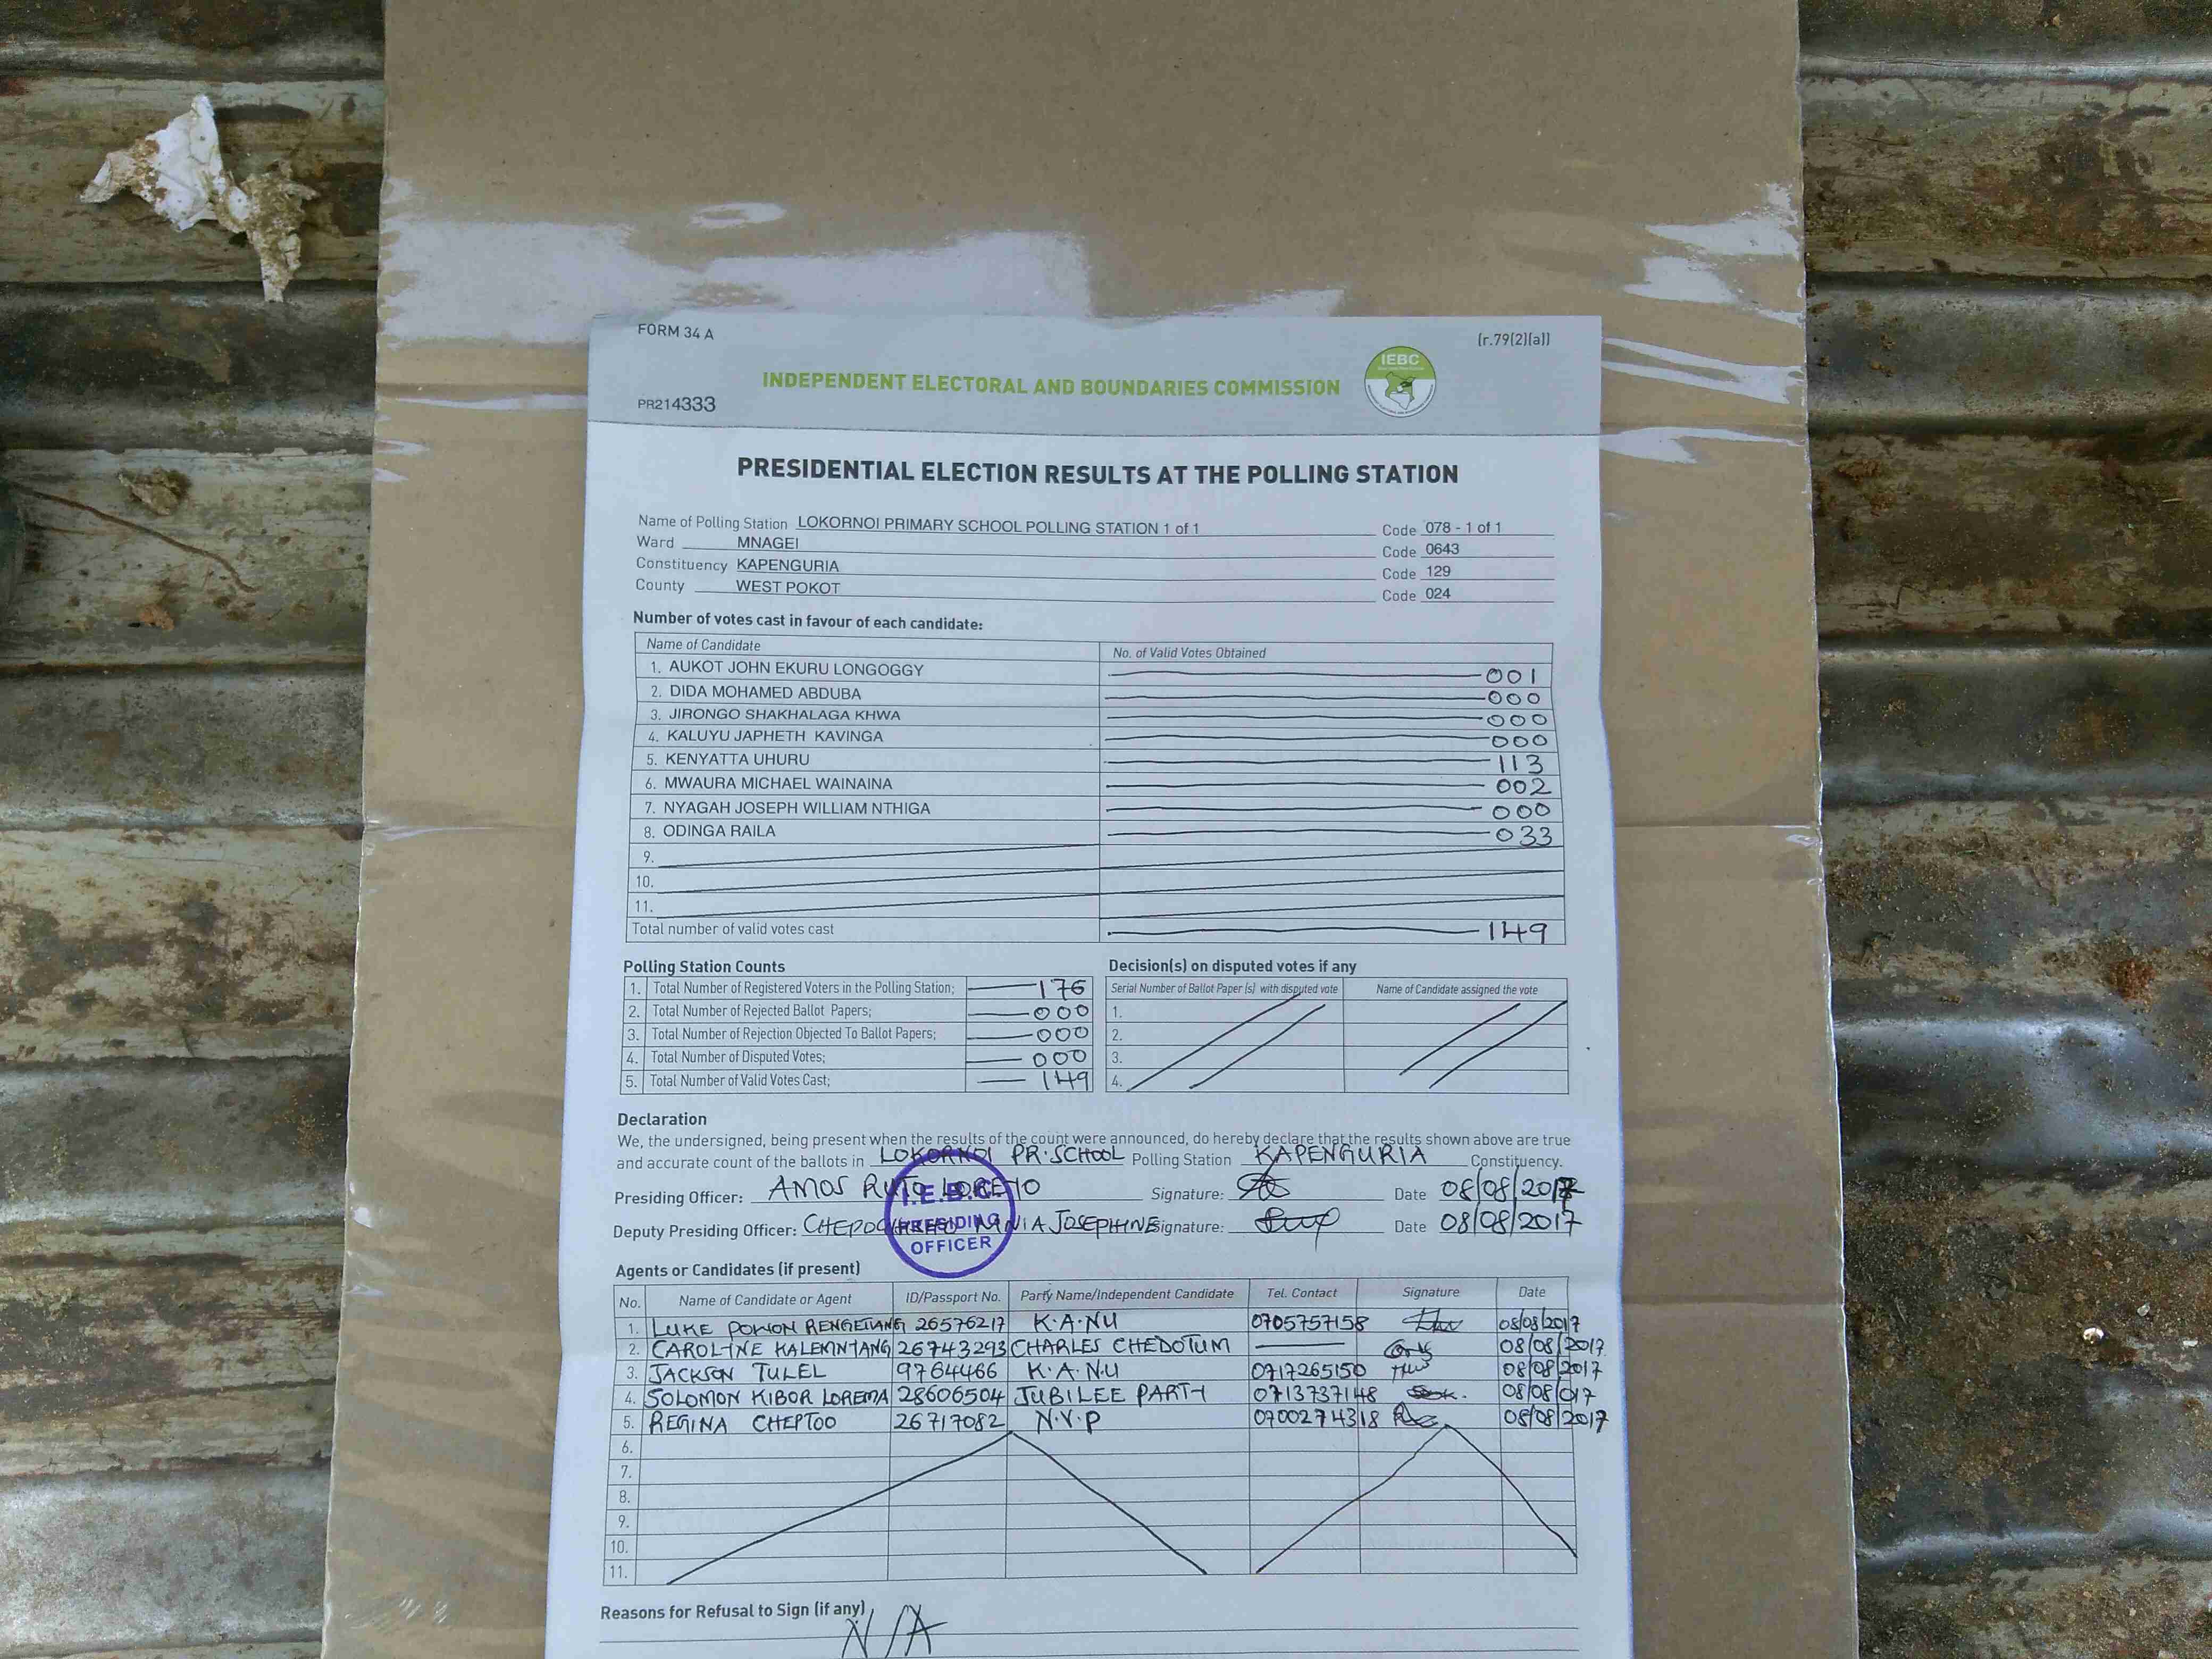 FORM 34 A
(r.79(2)(a))
IEBC
INDEPENDENT ELECTORAL AND BOUNDARIES COMMISSION
PR214333
PRESIDENTIAL ELECTION RESULTS AT THE POLLING STATION
Name of Polling Station LOKORNOI PRIMARY SCHOOL POLLING STATION 1 of 1 Code 078 - 1 of 1
Ward MNAGEI Code 0643
Constituency KAPENGURIA Code 129
County WEST POKOT Code 024
Number of votes cast in favour of each candidate:
Name of Candidate No. of Valid Votes Obtained
1. AUKOT JOHN EKURU LONGOGGY 001
2. DIDA MOHAMED ABDUBA 000
3. JIRONGO SHAKHALAGA KHWA 000
4. KALUYU JAPHETH KAVINGA 000
5. KENYATTA UHURU 113
6. MWAURA MICHAEL WAINAINA 002
7. NYAGAH JOSEPH WILLIAM NTHIGA 000
8. ODINGA RAILA 033
9.
10.
11.
Total number of valid votes cast 149
Polling Station Counts
1. Total Number of Registered Voters in the Polling Station; 176
2. Total Number of Rejected Ballot Papers; 000
3. Total Number of Rejection Objected To Ballot Papers; 000
4. Total Number of Disputed Votes; 000
5. Total Number of Valid Votes Cast; 149
Decision(s) on disputed votes if any
Serial Number of Ballot Paper (s) with disputed vote Name of Candidate assigned the vote
1.
2.
3.
4.
Declaration
We, the undersigned, being present when the results of the count were announced, do hereby declare that the results shown above are true
and accurate count of the ballots in LOKORNOI PR.SCHOOL Polling Station KAPENGURIA Constituency.
Presiding Officer: AMOS RUTO LOREYO Signature: Date 08/08/2017
Deputy Presiding Officer: JOSEPHINE Signature: Date 08/08/2017
I.E.B.C
PRESIDING
OFFICER
Agents or Candidates (if present)
No. Name of Candidate or Agent ID/Passport No. Party Name/Independent Candidate Tel. Contact Signature Date
1. LUKE RENGETIANG 26576217 K.A.NU 0705757158 08/08/2017
2. CAROLINE 26743293 CHARLES CHEDOTUM 08/08/2017
3. JACKSON TULEL 9764466 K.A.N.U 0717265150 08/08/2017
4. SOLOMON KIBOR LOREMA 28606504 JUBILEE PARTY 0713737148 08/08/017
5. REGINA CHEPTOO 26717082 N.V.P 0700274318 08/08/2017
6.
7.
8.
9.
10.
11.
Reasons for Refusal to Sign (if any)
N/A